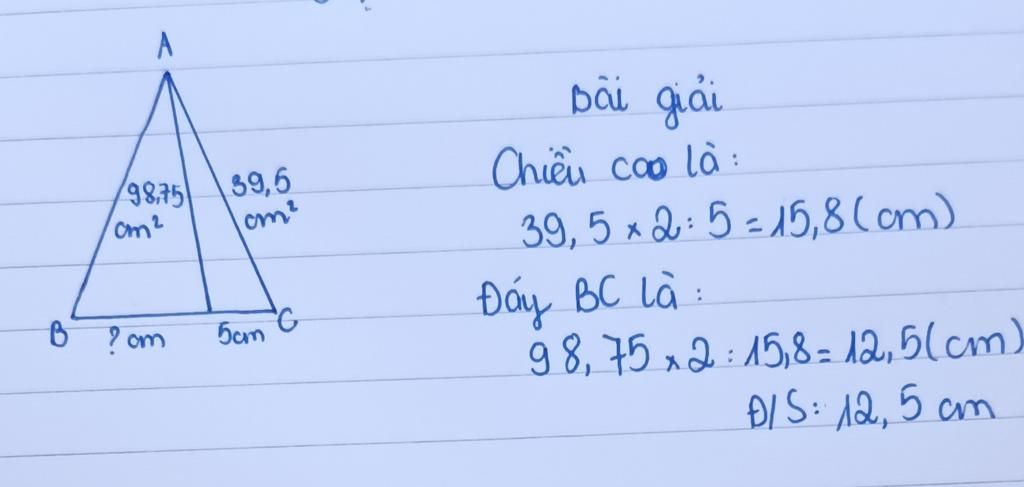 A
98,75
cm²
39,5
cm²
B
? cm
5cm
C
Bài giải
Chiều cao là:
39,5 × 2 : 5 = 15,8 (cm)
Đáy BC là:
98,75 × 2 : 15,8 = 12,5 (cm)
Đ/S: 12,5 cm